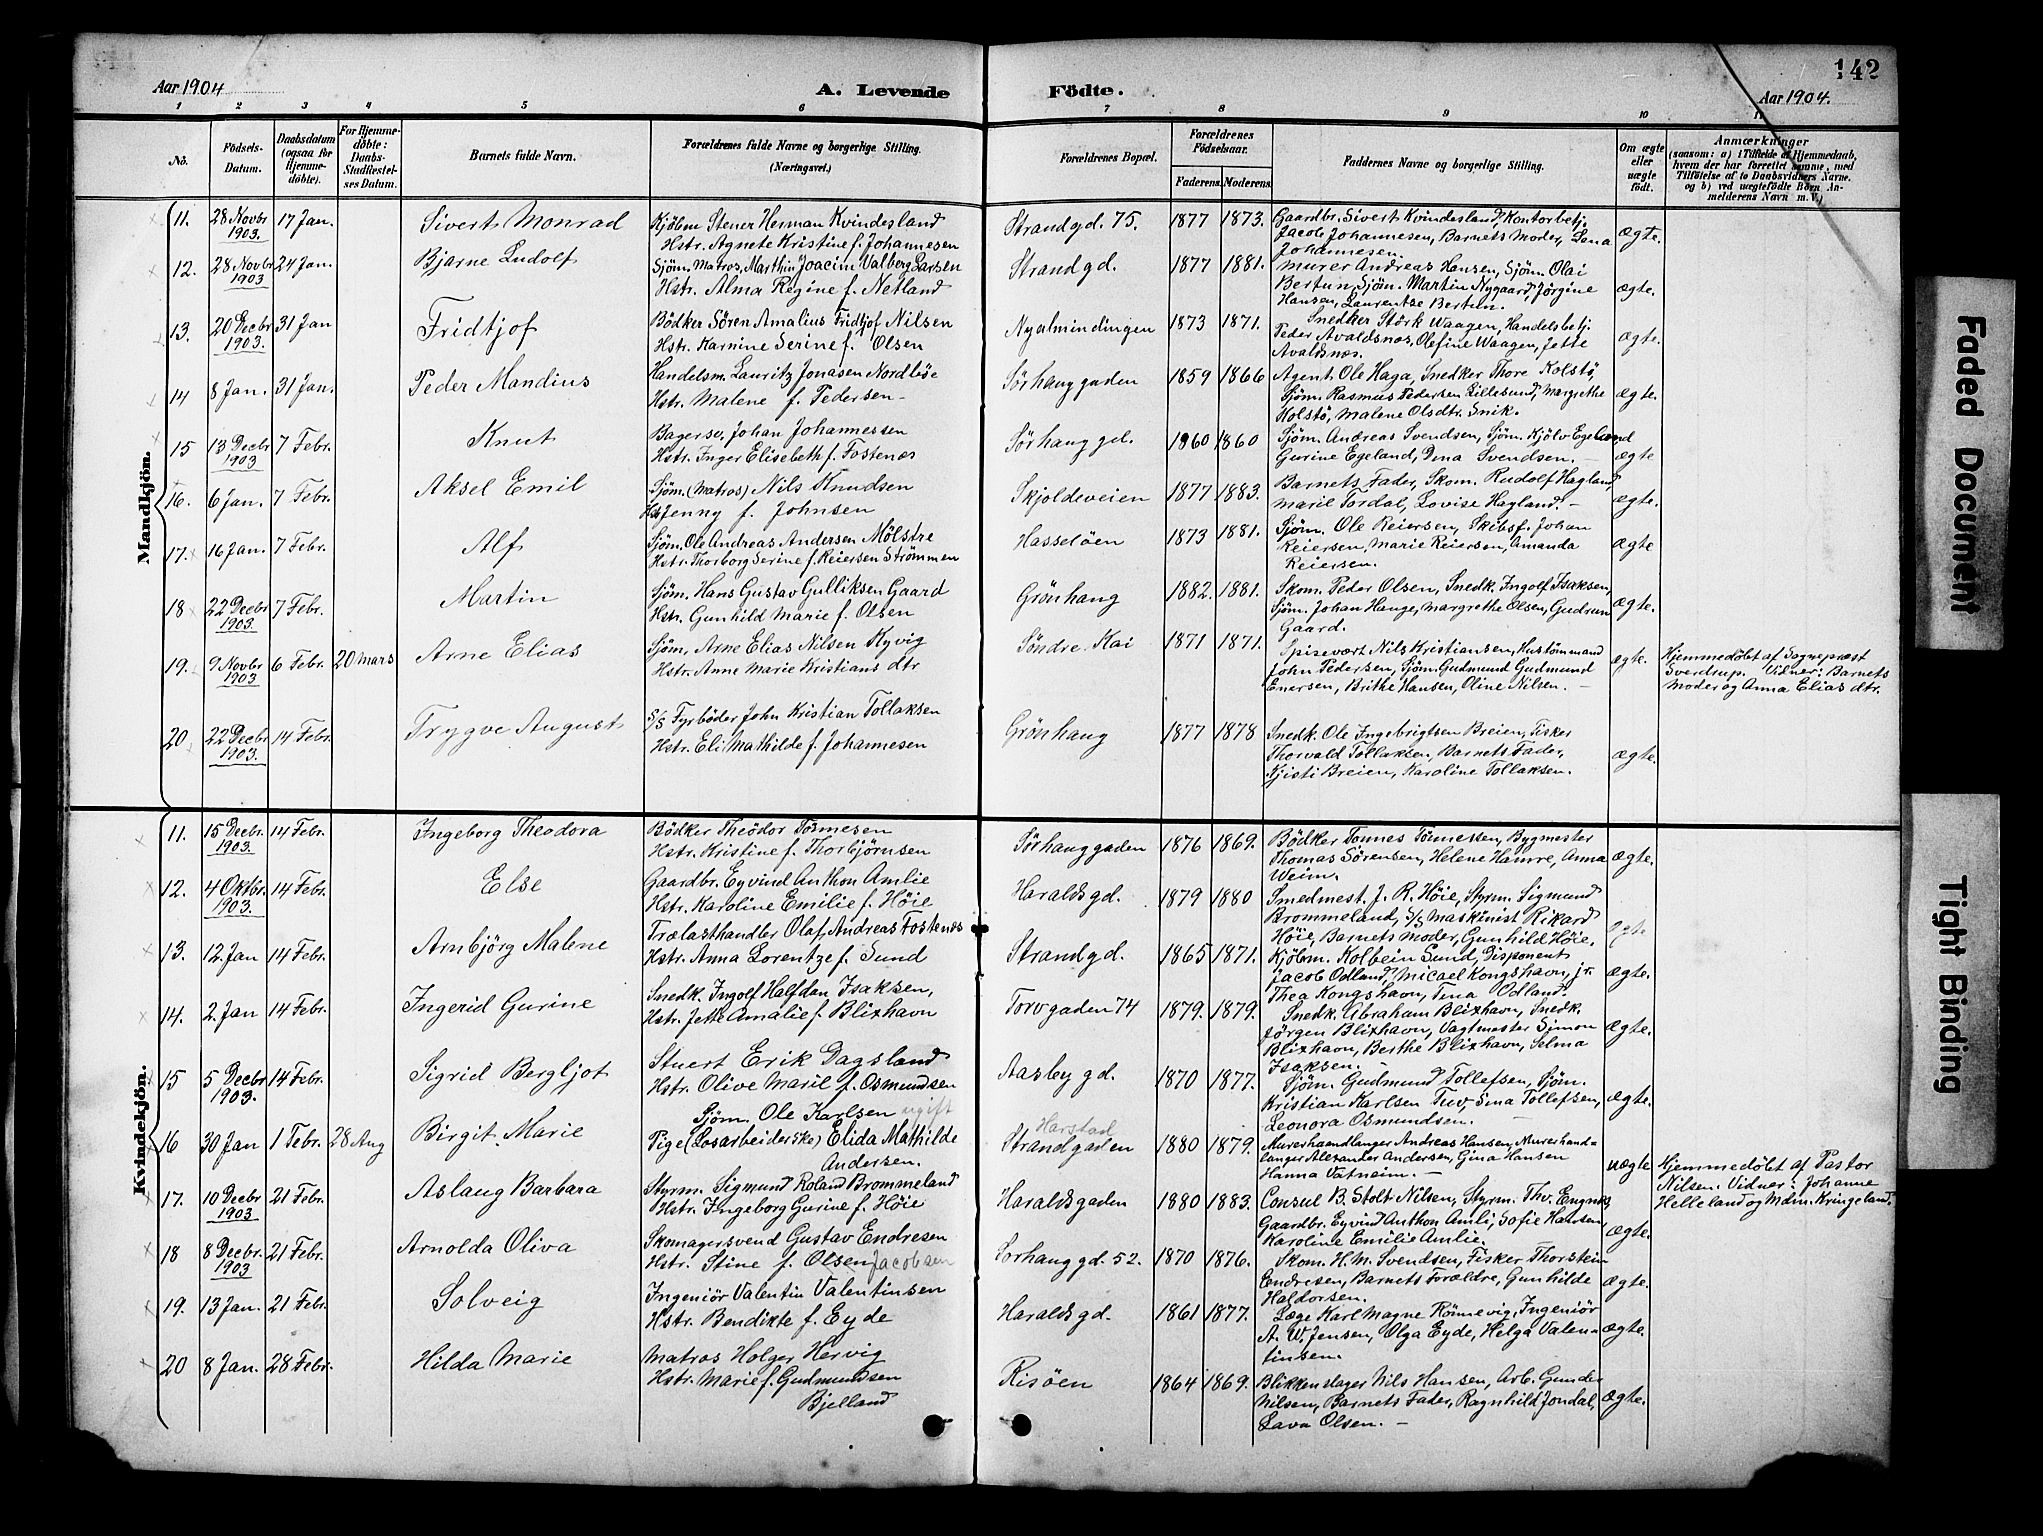 142
Aar 1904
A. Levende
Födte.
Aar 1904.
1 2 3 4 5 6 7 8 9 10 11
No.
Födsels-Datum.
Daabsdatum (ogsaa for Hjemmedöbte).
For Hjemmedöbte: Daabs-Stadfæstelses Datum.
Barnets fulde Navn.
Forældrenes fulde Navne og borgerlige Stilling. (Næringsvei.)
Forældrenes Bopæl.
Forældrenes Födselsaar.
Faderens. Moderens.
Faddernes Navne og borgerlige Stilling.
Om ægte eller uægte födt.
Anmærkninger
(saasom: a) i Tilfælde af Hjemmedaab, hvem der har forrettet samme, med Tilföielse af to Daabsvidners Navne. og b) ved uægtefödte Börn Anmelderens Navn m. V.)
Mandkjön.
11. 28 Novbr 1903. 17 Jan. Sivert Monrad
Kjöbm Stener Herman Kvindesland
Hstr. Agnete Kristine f. Johannesen
Strandgd. 75. 1877 1873.
Gaardbr. Sivert Kvindesland, Kontorbetj.
Jacob Johannesen, Barnets Moder, Lena
Johannesen.
ægte.
12. 28 Novbr 1903 24 Jan. Bjarne Ludolf
Sjöm. Matros, Marthin Joacim Valberg Larsen
Hstr. Alma Regine f. Netland
Strandgd. 1877 1881.
Murer Andreas Hansen, Sjöm. Olai
Bertun, Sjöm. Martin Nygaard, Jörgine
Hansen, Laurentze Bertun.
ægte.
13. 20 Decbr 1903. 31 Jan Fridtjof
Bödker Sören Amalius Fridtjof Nilsen
Hstr. Karnine Serine f. Olsen
Nyalmindingen 1873 1871.
Snedker Störk Waagen, Handelsbetj.
Peder Avaldsnos, Olefine Waagen, Jette
Avaldsnæs.
ægte.
14 8 Jan. 31 Jan. Peder Mandius
Handelsm. Lauritz Jonasen Nordböe
Hstr. Malene f. Pedersen-
Sörhauggaden 1859 1866
Agent Ole Haga, Snedker Thore Kolstö,
Sjöm. Rasmus Pedersen Lillesund, Margrethe
Kolstö, Malene Olsdtr. Snik.
ægte.
15 13 Decbr 1903 7 Febr. Knut
Bagersv. Johan Johannessen
Hstr. Inger Elisebeth f. Fostenæs
Sörhauggd. 1860 1860
Sjöm. Andreas Svendsen, Sjöm. Kjölv Egeland
Gurine Egeland, Dina Svendsen. -
ægte
16. 6 Jan. 7 Febr. Aksel Emil
Sjöm. (Matros) Nils Knudsen
Hstr. Jenny f. Johnsen
Skjoldeveien 1877 1883.
Barnets Fader, Skom. Rudolf Hagland,
Maril Tordal, Lovise Hagland. -
ægte.
17. 16 Jan. 7 Febr. Alf
Sjöm. Ole Andreas Andersen Mölstre
Hstr. Thorborg Serine f. Reiersen Strömmen
Hasselöen 1873 1881.
Sjöm. Ole Reiersen, Skibsf. Johan
Reiersen, Marie Reiersen, Amanda
Reiersen.
ægte
18 22 Decbr 1903 7 Febr. Martin
Sjöm. Hans Gustav Gulliksen Gaard
Hstr. Gunhild Marie f. Olsen
Grönhaug 1882. 1881.
Skom. Peder Olsen, Snedk. Ingolf Isaksen,
Sjöm. Johan Hauge, Margrethe Olsen, Gudrun
Gaard.
ægte.
19. 9 Novbr 1903 6 Febr. 20 Mars Arne Elias
Sjöm, Arne Elias Nilsen Kyvig
Hstr. Anne Marie Kristians dtr
Söndre Kai 1871 1871.
Spisevært Nils Kristiansen, Hustömmand
John Pedersen, Sjöm. Gudmund Gudmund
Enersen, Brithe Hansen, Oline Nilsen. -
ægte.
Hjemmedöbt af Sognepræst
Sverdrup. Vidner: Barnets
Moder og Anna Elias dtr.
20 22 Decbr 1903. 14 Febr. Trygve August
S/S Fyrböder John Kristian Tollaksen
Hstr. Eli Mathilde f. Johannesen
Grönhaug 1877 1878
Snedk. Ole Ingebrigtsen Breien, Fisker
Thorvald Tollaksen, Barnets Fader,
Kjisti Breien, Karoline Tollaksen.
ægte.
Kvindekjön.
11. 15 Decbr. 1903. 14 Febr. Ingeborg Theodora
Bödker Theödor Tönnesen
Hstr. Kristine f. Thorbjörnsen
Sörhauggaden 1876 1869.
Bödker Tönnes Tönnessen, Bygmester
Thomas Sörensen, Helene Hamre, Anna
Weim.
ægte.
12. 4 Oktbr. 1903. 14 Febr. Else
Gaardbr. Eyvind Anthon Amlie
Hstr. Karoline Emilie f. Höie
Haraldsgd. 1879 1880
Smedmest. J. R. Höie, Styrm. Sigmund
Brommeland, S/S Maskinist Rikard
Höie, Barnets Moder, Gunhild Höie.
ægte.
13. 12 Jan 14 Febr. Arnbjörg Malene
Trælasthandler Olaf Andreas Fostenæs
Hstr. Anna Lorentze f. Sund
Strandgd. 1865 1871.
Kjöbm. Kolbein Sund, Disponent
Jacob Odland, Micael Kongshavn, jr.
Thea Kongshavn, Tina Odland.
ægte.
14. 2 Jan 14 Febr. Ingerid Gurine
Snedk. Ingolf Halfdan Isaksen,
Hstr. Jette Amalie f. Blixhavn
Torvgaden 74 1879. 1879.
Snedk. Abraham Blixhavn, Snedk.
Jörgen Blixhavn, Vagtmester Simon
Blixhavn, Berthe Blixhavn, Selma
Isaksen.
ægte.
15 5 Decbr 1903. 14 Febr. Sigrid Bergljot
Stuert Erik Dagsland
Hstr. Olive Maril f. Osmundsen
Aasbygd. 1870 1877.
Sjöm. Gudmund Tollefsen, Sjöm.
Kristian Karlsen Tuv, Sina Tollefsen,
Leonora Osmundsen.
ægte.
16 30 Jan 1 Febr. 28 Aug Birgit Marie
Sjöm. Ole Karlsen ugift
Pige (Losarbeiderske) Elida Mathilde
Andersen.
Harstad
Strandgaden 1880 1879.
Murerhaandlanger Andreas Hansen, Murerhand=
langer Alexander Andersen, Gina Hansen
Hanna Vatneim. -
uægte
Hjemmedöbt af Pastor
Nilsen. Vidner: Johanne
Helleland og Mdm. Kringeland.
17. 10 Decbr 1903 21 Febr. Aslaug Barbara
Styrm. Sigmund Roland Brommeland
Hstr. Ingeborg Gurine f. Höie
Haraldsgaden 1880 1883.
Consul B. Stolt Nilsen, Styrm. Thv. Engnæs,
Gaardbr. Eyvind Anthon Amli, Sofie Hansen,
Karoline Emilie Amlie.
ægte.
18 8 Decbr. 1903 21 Febr. Arnolda Oliva
Skomagersvend Gustav Endresen
Hstr. Stine f. Olsen Jacobsen
Sorhauggd. 52. 1870 1876.
Skom. H. M. Svendsen, Fisker Thorstein
Endresen, Barnets Forældre, Gunhilde
Haldorsen.
ægte.
19. 13 Jan. 21 Febr. Solveig
Ingeniör Valentin Valentinsen
Hstr. Bendikte f. Eyde
Haraldsgd. 1861 1877.
Læge Karl Magne Rönnevig, Ingeniör
A. W. Jensen, Olga Eyde, Helga Valen=
tinsen.
ægte.
20 8 Jan. 28 Febr. Hilda Marie
Matros Holger Hervig
Hstr. Marie f. Gudmundsen
Bjelland
Risöen 1864 1869.
Blikkenslager Nils Hansen, Arb. Gunder
Nilsen, Barnets Fader, Ragnhild Jondal,
Lava Olsen. -
ægte.
Faded Document
Tight Binding